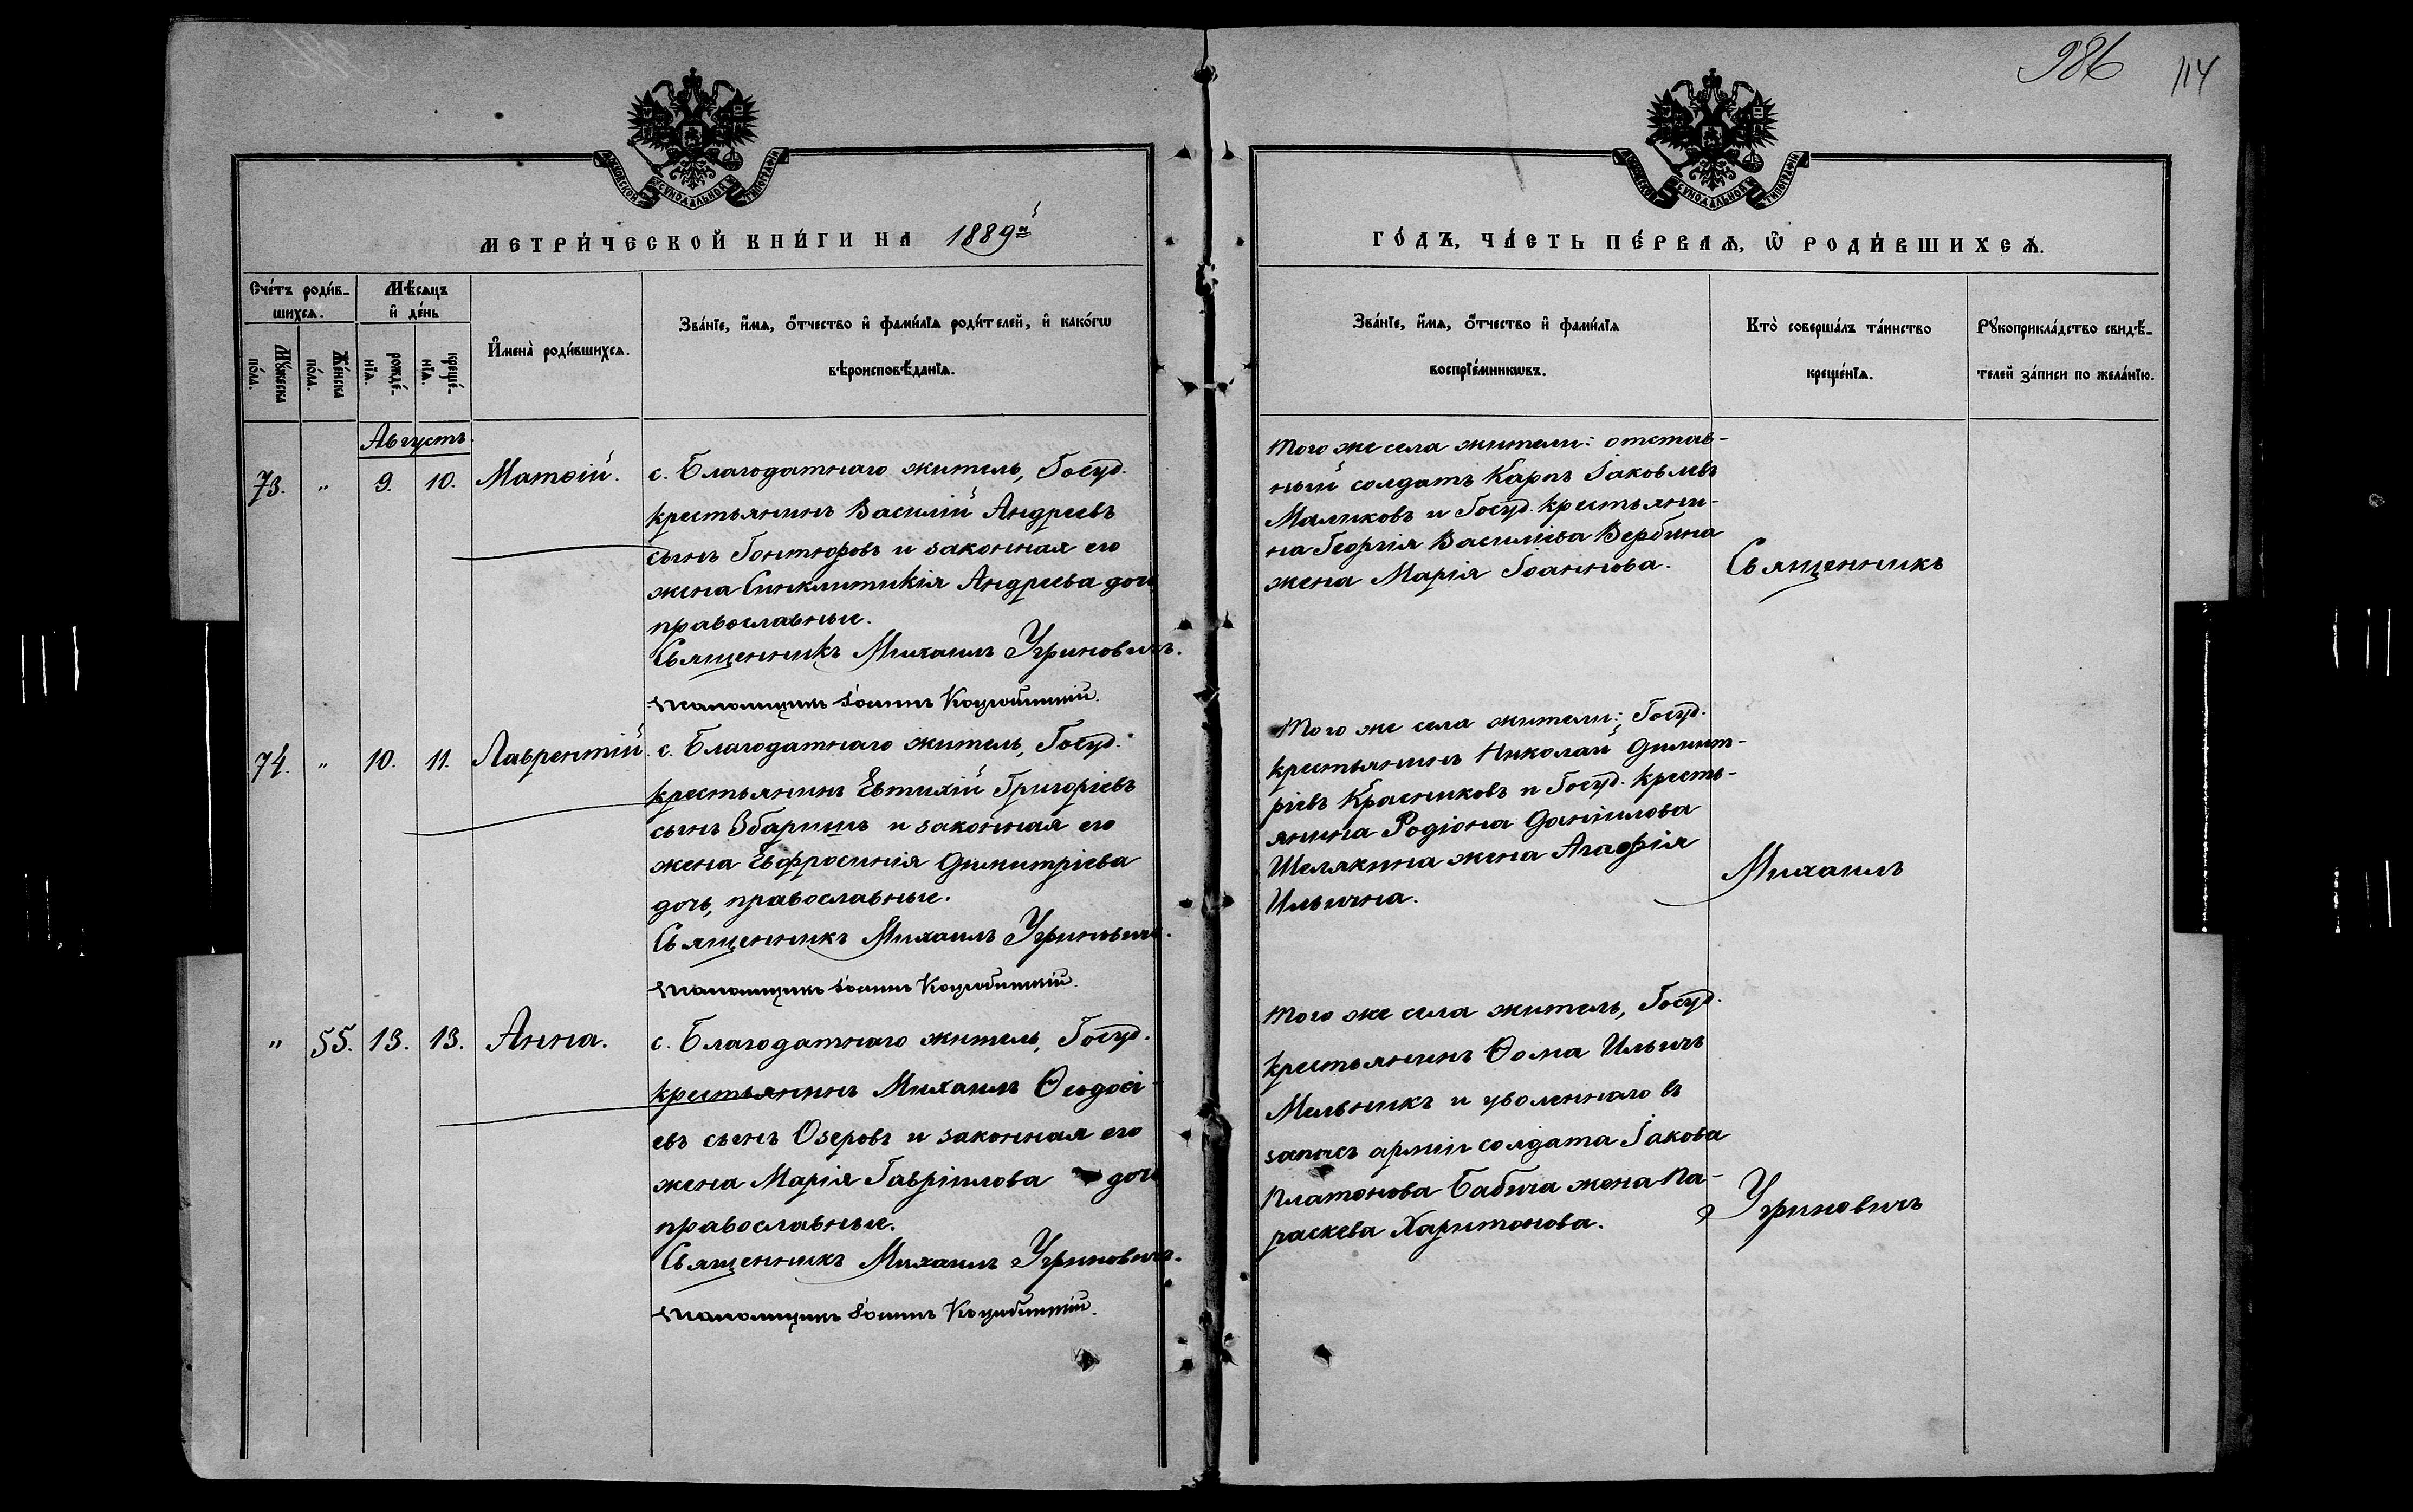 986
114
МОСКОВСКОЙ СѴНОДАЛЬНОЙ ТИПОГРАФІИ
МЕТРИ́ЧЕСКОЙ КНИ́ГИ НА 1889й
Сче́тъ роди́в-
шихсѧ.
Мѣ́сѧцъ
и҆ де́нь
Мꙋ́жеска
по́ла.
Же́нска
по́ла.
рожде́-
нїѧ.
креще́-
нїѧ.
И҆мена̀ роди́вшихсѧ.
Зва́нїе, и҆́мѧ, ѻ҆́тчество и҆ фами́лїѧ роди́телей, и҆ како́гѡ
вѣроисповѣ́данїѧ.
Августъ.
73. " 9. 10. Матѳій.
с. Благодатнаго житель, Госуд.
крестьянинъ Василій Андреевъ
сынъ Гонтюровъ и законная его
жена Синклитикія Андреева дочь
православные.
Священникъ Михаилъ Угриновичъ.
Псаломщикъ Іоаннъ Коцюбинскій.
74. " 10. 11. Лаврентій.
с. Благодатнаго житель, Госуд.
крестьянинъ Евтихій Григоріевъ
сынъ Збаришъ и законная его
жена Евфросинія Димитріева
дочь, православные.
Священникъ Михаилъ Угриновичъ.
Псаломщикъ Іоаннъ Коцюбинскій.
" 55. 13. 13. Анна.
с. Благодатнаго житель, Госуд.
крестьянинъ Михаилъ Ѳеодосі-
евъ сынъ Озеровъ и законная его
жена Марія Гавріилова дочь
православные.
Священникъ Михаилъ Угриновичъ.
Псаломщикъ Іоаннъ Коцюбинскій.
МОСКОВСКОЙ СѴНОДАЛЬНОЙ ТИПОГРАФІИ
ГО́ДЪ, ЧА́СТЬ ПЕ́РВАѦ, Ѡ҆ РОДИ́ВШИХСѦ.
Зва́нїе, и҆́мѧ, ѻ҆́тчество и҆ фами́лїѧ
воспрїе́мникѡвъ.
Кто̀ соверша́лъ та́инство
креще́нїѧ.
Рꙋкоприкла́дство свидѣ́-
телей за́писи по жела́нїю.
Того же села жители: отстав-
ный солдатъ Карпъ Іаковлевъ
Маликовъ и Госуд. крестьяни-
на Георгія Василіева Вербина
жена Марія Іоаннова.
Священникъ
Того же села жители: Госуд.
крестьянинъ Николай Димит-
ріевъ Красниковъ и Госуд. кресть-
янина Родіона Даніилова
Шелякина жена Агафія
Ильична.
Михаилъ
Того же села житель, Госуд.
крестьянинъ Ѳома Ильичъ
Мельникъ и уволеннаго въ
запасъ арміи солдата Іакова
Платонова Бабича жена Па-
раскева Харитонова.
Угриновичъ